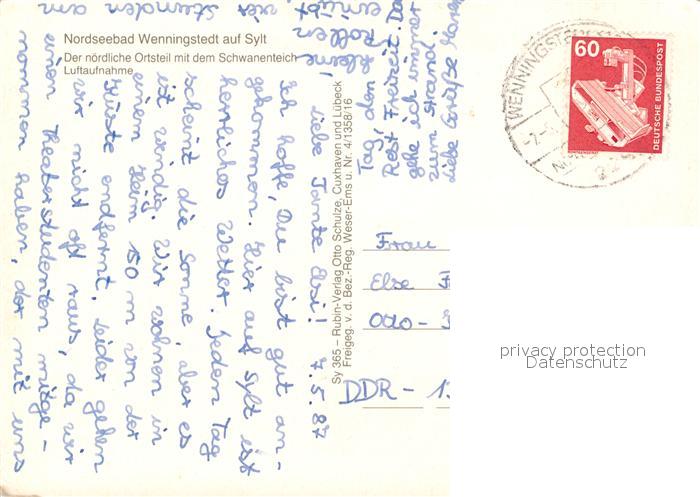 Nordseebad Wenningstedt auf Sylt
Der nördliche Ortsteil mit dem Schwanenteich
Luftaufnahme
7.5.87
Liebe Tante Elsi!
Ich hoffe, Du bist gut an-
gekommen. Hier auf Sylt ist
herrliches Wetter. Jeden Tag
scheint die Sonne, aber es
ist windig. Wir wohnen in
einem Heim 150 m von der
Küste entfernt. Leider gehen
wir nicht oft raus, da wir
einen Theaterstudenten mitge-
nommen haben, der mit uns
vier Stunden am
Tag, den
Rest Freizeit. Da
gehe ich immer
zum Strand.
Liebe Grüße
Sy 365 – Rubin-Verlag Otto Schulze, Cuxhaven und Lübeck
Freigeg. v. d. Bez.-Reg. Weser-Ems u. Nr. 4/1358/16
60
DEUTSCHE BUNDESPOST
WENNINGSTEDT
Frau
Else
Otto-
DDR - 1
privacy protection
Datenschutz